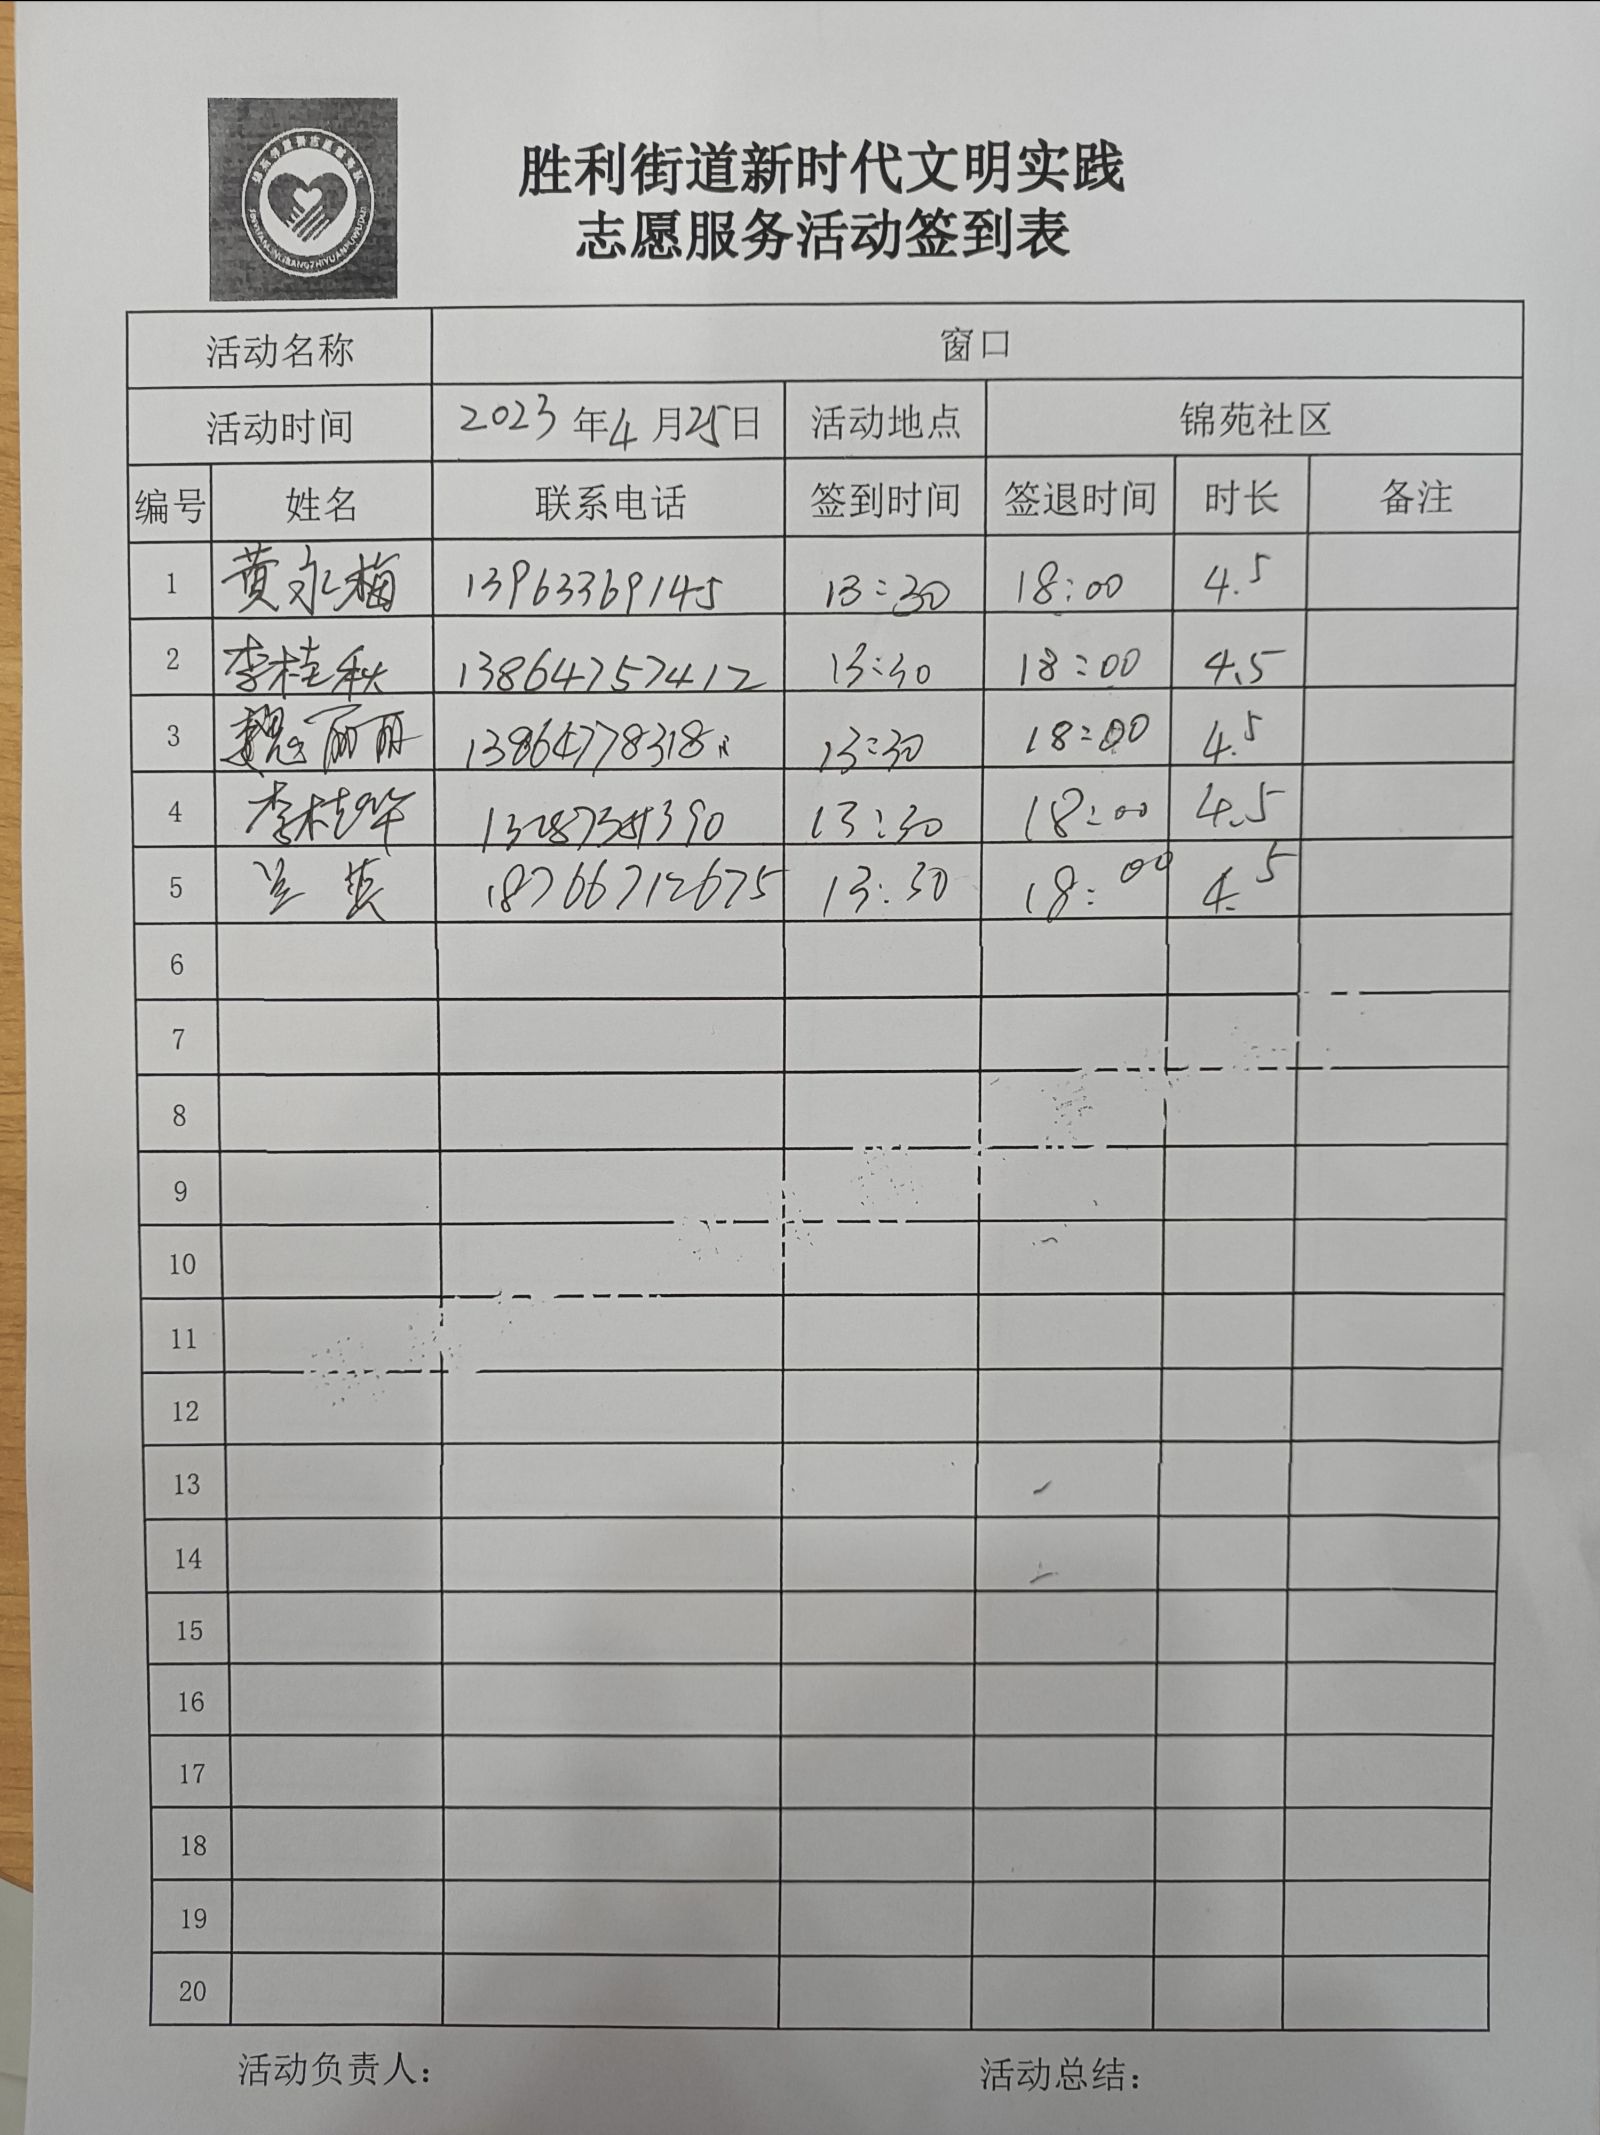 胜利街道新时代文明实践
志愿服务活动签到表
活动名称 窗口
活动时间 2023年4月25日 活动地点 锦苑社区
编号 姓名 联系电话 签到时间 签退时间 时长 备注
1 黄永梅 13963369145 13:30 18:00 4.5
2 李桂秋 13864757412 13:30 18:00 4.5
3 魏丽丽 13864778318 13:30 18:00 4.5
4 李桂华 13:30 18:00 4.5
5 兰英 18766712675 13:30 18:00 4.5
6
7
8
9
10
11
12
13
14
15
16
17
18
19
20
活动负责人： 活动总结：